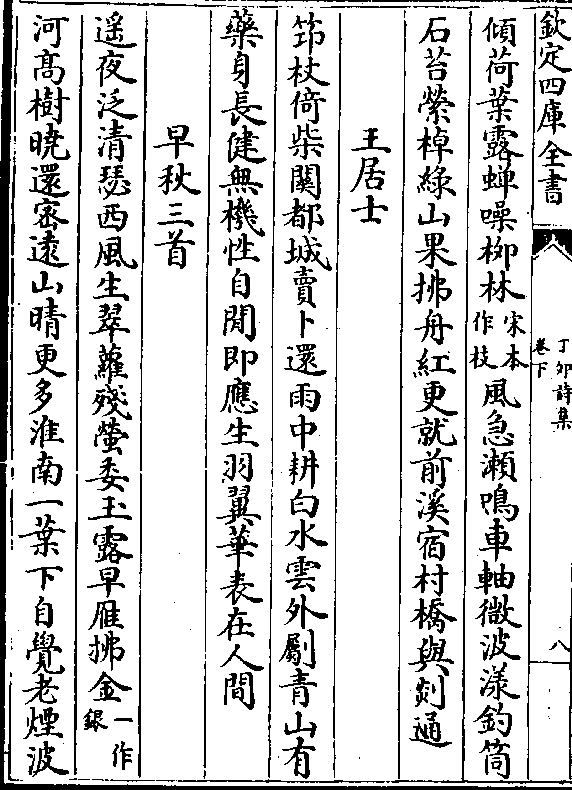 欽定四庫全書
丁夘詩集
卷下
八
傾荷葉露蟬噪栁林宋本作枝風急瀬鳴車軸微波漾釣筒
石苔縈棹綠山果拂舟紅更就前溪宿村橋與剡通
王居士
筇杖倚柴關都城賣卜還雨中耕白水雲外劚青山有
藥身長健無機性自閒即應生羽翼華表在人間
早秋三首
遥夜泛清瑟西風生翠蘿殘螢委玉露早雁拂金一作銀
河髙樹曉還宻逺山晴更多淮南一葉下自覺老煙波